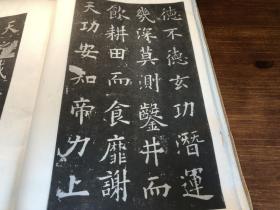 德不德玄功潛運
幾深莫測鑿井而
飲耕田而食靡謝
天功安知帝力上
天